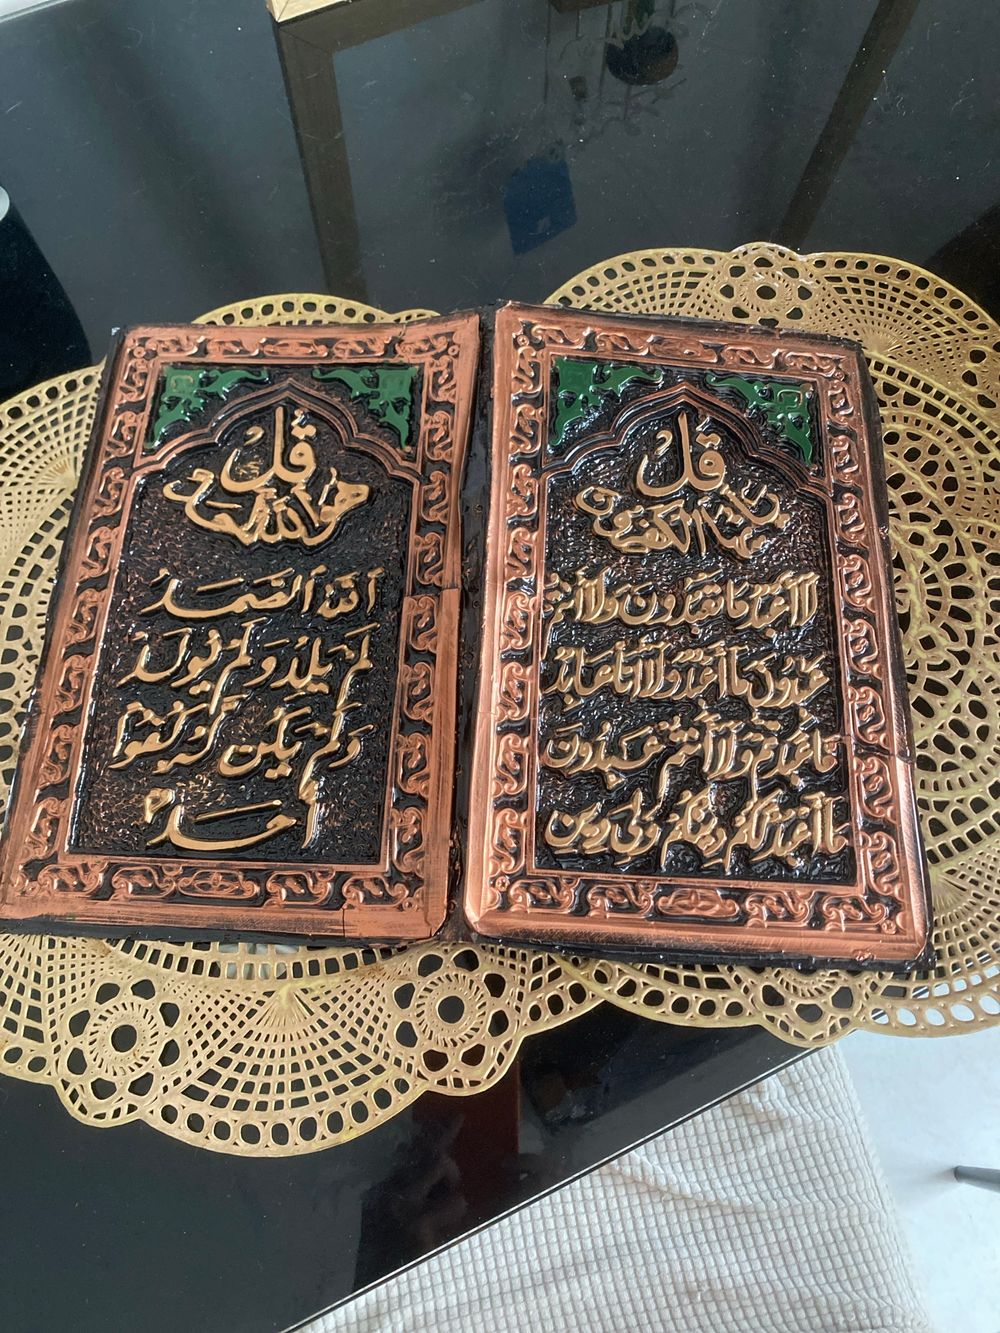 قل
يا أيها الكفرون
لا أعبد ما تعبدون ولا أنتم
عبدون ما أعبد ولا أنا عابد
ما عبدتم ولا أنتم عبدون
ما أعبد لكم دينكم ولي دين
قل
هو الله أحد
الله الصمد
لم يلد ولم يولد
ولم يكن له كفوا
أحد